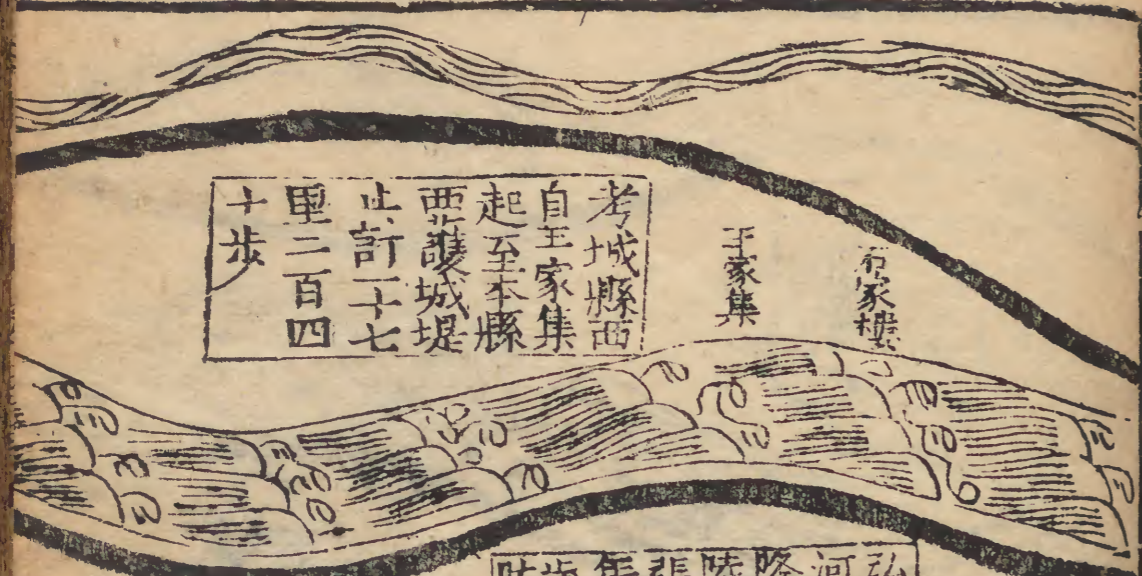 石家樓
王家集
考城縣西
自王家集
起至本縣
西䕶城堤
止計一十七
里二百四
十步
弘
河
陸
張